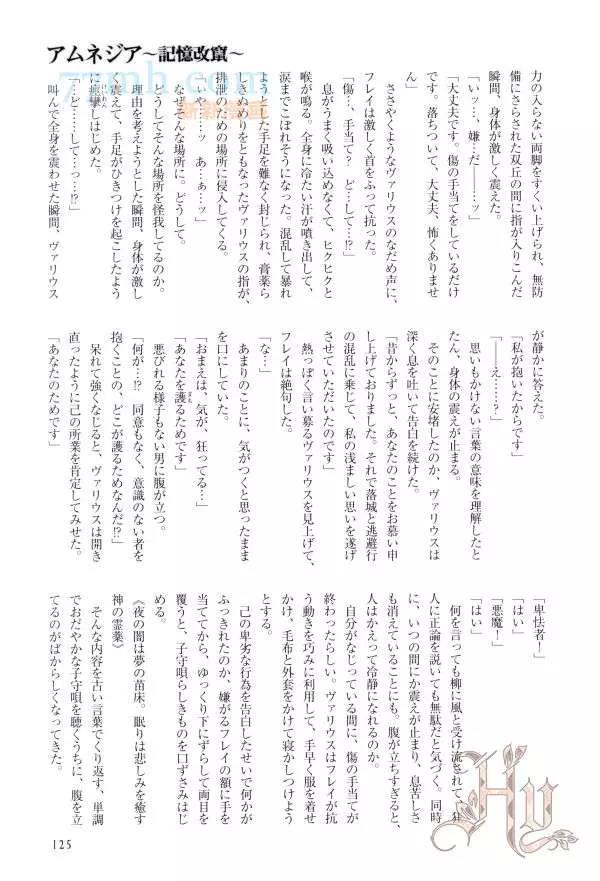 アムネジア～記憶改竄～
力の入らない両脚をすくい上げられ、無防
備にさらされた双丘の間に指が入りこんだ
瞬間、身体が激しく震えた。
「いッ…、嫌…だ―――ッ」
「大丈夫です。傷の手当てをしているだけ
です。落ちついて、大丈夫、怖くありませ
ん」
ささやくようなヴァリウスのなだめ声に、
フレイは激しく首をふって抗った。
「傷…、手当て？　ど…して…!?」
息がうまく吸い込めなくて、ヒクヒクと
喉が鳴る。全身に冷たい汗が噴き出して、
涙までこぼれそうになった。混乱して暴れ
ようとした手足を難なく封じられ、膏薬ら
しきぬめりをともなったヴァリウスの指が、
排泄のための場所に侵入してくる。
「いや……ッ　あ…ぁ…ッ」
なぜそんな場所に。どうして。
どうしてそんな場所を怪我してるのか。
理由を考えようとした瞬間、身体が激し
く震えて、手足がひきつけを起こしたよう
に痙攣しはじめた。
けいれん
「…ど……して…っ…!?」
叫んで全身を震わせた瞬間、ヴァリウス
が静かに答えた。
「私が抱いたからです」
「――え……？」
思いもかけない言葉の意味を理解したと
たん、身体の震えが止まる。
そのことに安堵したのか、ヴァリウスは
深く息を吐いて告白を続けた。
「昔からずっと、あなたのことをお慕い申
し上げておりました。それで落城と逃避行
の混乱に乗じて、私の浅ましい思いを遂げ
させていただいたのです」
熱っぽく言い募るヴァリウスを見上げて、
フレイは絶句した。
「な…」
あまりのことに、気がつくと思ったまま
を口にしていた。
「おまえは、気が、狂ってる…」
「あなたを護るためです」
まも
悪びれる様子もない男に腹が立つ。
「何が…!?　同意もなく、意識のない者を
抱くことの、どこが護るためなんだ!?」
呆れて強くなじると、ヴァリウスは開き
直ったように己の所業を肯定してみせた。
「あなたのためです」
「卑怯者！」
「はい」
「悪魔！」
「はい」
何を言っても柳に風と受け流されて、狂
人に正論を説いても無駄だと気づく。同時
に、いつの間にか震えが止まり、息苦しさ
も消えていることにも。腹が立ちすぎると、
人はかえって冷静になれるのか。
自分がなじっている間に、傷の手当てが
終わったらしい。ヴァリウスはフレイが抗
う動きを巧みに利用して、手早く服を着せ
かけ、毛布と外套をかけて寝かしつけよう
とする。
己の卑劣な行為を告白したせいで何かが
ふっきれたのか、嫌がるフレイの額に手を
当ててから、ゆっくり下にずらして両目を
覆うと、子守唄らしきものを口ずさみはじ
める。
《夜の闇は夢の苗床。眠りは悲しみを癒す
神の霊薬》
そんな内容を古い言葉でくり返す、単調
でおだやかな子守唄を聴くうちに、腹を立
てるのがばからしくなってきた。
125
Hy